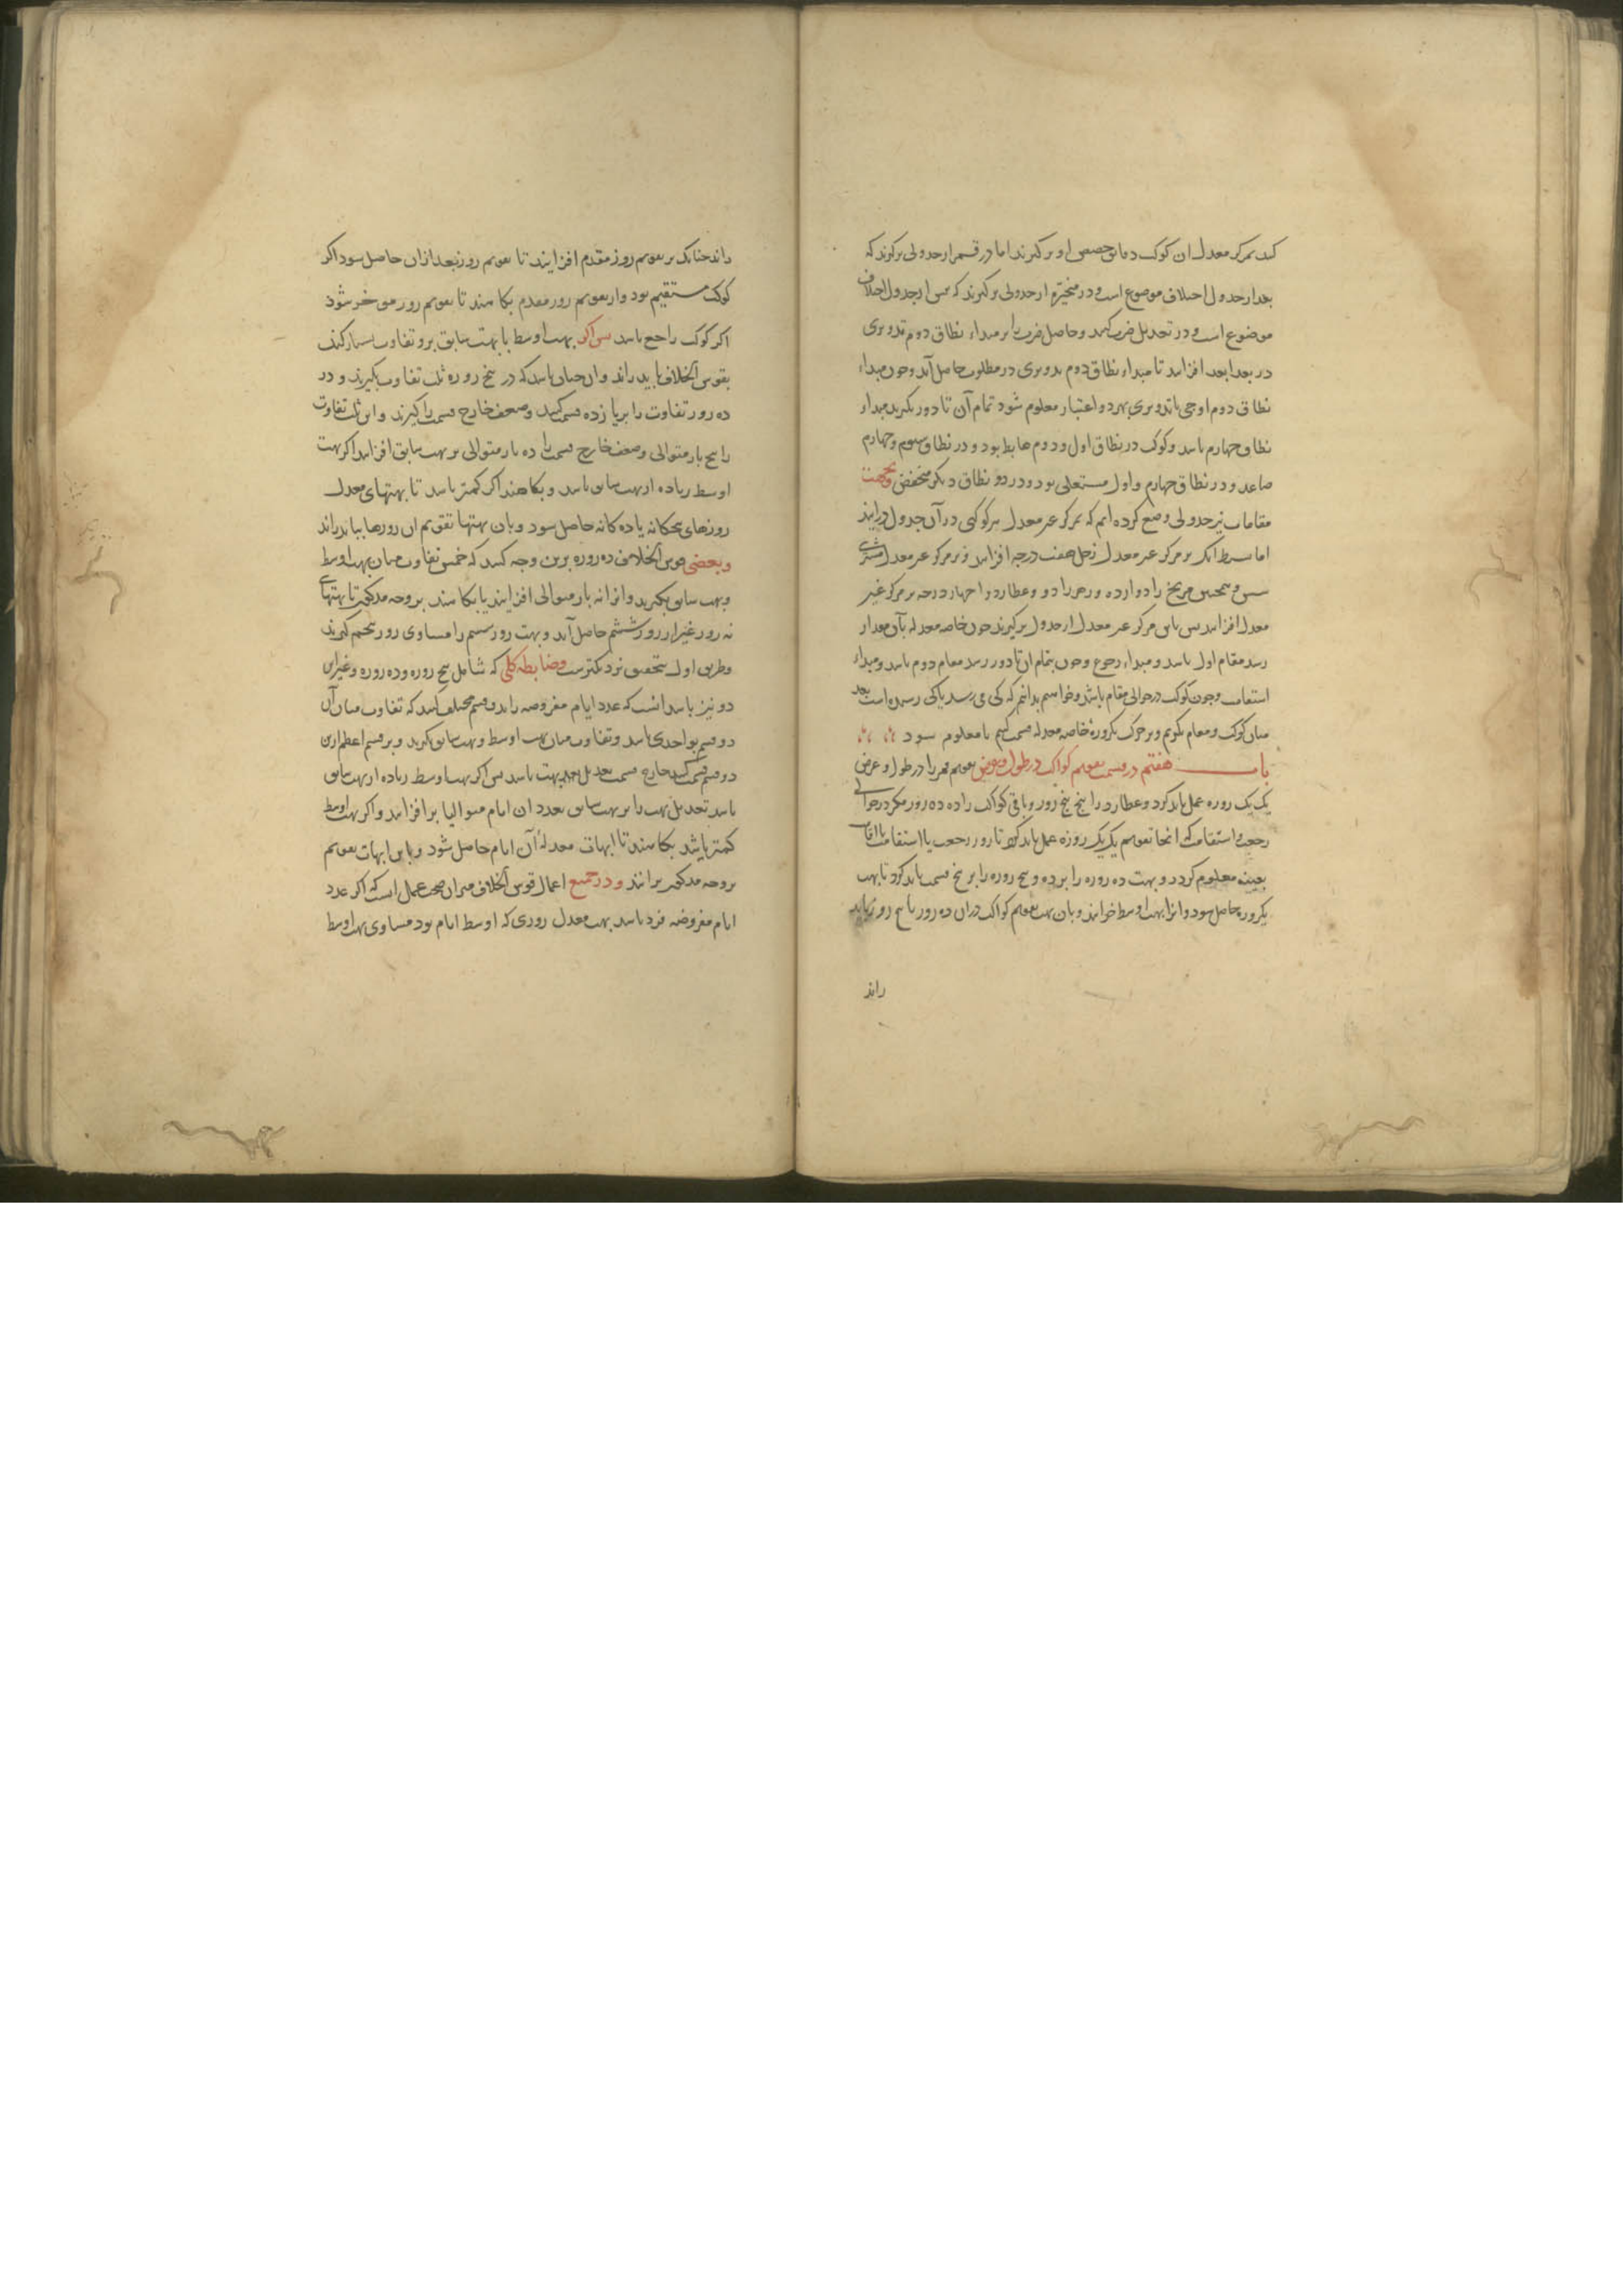 کنند بمرکز معدل ان کوکب دقایق حصص او برگیرند اما در قمر از جدولی برگیرند که
بعد از جدول اختلاف موضوع است و در متحیره از جدولی برگیرند که پس از جدول اختلاف
موضوع است و در تعدیل ضرب کنند و حاصل ضرب را بر مبداء نطاق دوم تدویری
در بعد ابعد افزایند تا مبداء نطاق دوم تدویری در مطلوب حاصل آید و چون مبداء
نطاق دوم اوجی یا تدویری بهر دو اعتبار معلوم شود تمام آن تا دور بگیرند مبداء
نطاق چهارم باشد و کوکب در نطاق اول و دوم هابط بود و در نطاق سوم و چهارم
صاعد و در نطاق چهارم و اول مستعلی بود و در دو نطاق دیگر منخفض و بجهت
مقامات نیز جدولی وضع کرده ایم که بمرکز غیر معدل هر کوکبی در آن جدول در آیند
اما بشرط آنک بر مرکز غیر معدل زحل هفت درجه افزایند و بر مرکز غیر معدل مشتری
شش و همچنین مریخ را دوازده و زهره را دو و عطارد را چهار درجه بر مرکز غیر
معدل افزایند پس باین مرکز غیر معدل از جدول برگیرند چون خاصه معدله بآن مقدار
رسد مقام اول باشد و مبداء رجوع و چون بتمام آن تا دور رسد مقام دوم باشد و مبداء
استقامت و چون کوکب در حوالی مقام باشد و خواهیم بدانیم که کی می رسد یا کی رسیده است بعد
میان کوکب و مقام بگیریم و بر حرکت یکروزه خاصه معدله قسمت کنیم تا معلوم شود
باب هفتم در قسمت تقویم کواکب در طول و عرض تقویم قمر را در طول و عرض
یک یک روزه عمل باید کرد و عطارد را پنج پنج روز و باقی کواکب را ده ده روز مگر در حوالی
رجعت و استقامت که آنجا تقویم یک یک روزه عمل باید کرد تا روز رجعت یا استقامت یا اقامت
بعینه معلوم گردد و بهت ده روزه را بر ده و پنج روزه را بر پنج قسمت باید کرد تا بهت
یکروزه حاصل شود و آنرا بهت اوسط خوانند و بان بهت تقویم کواکب در آن ده روز یا پنج روز بباید
راند
راند چنانک بر تقویم روز مقدم افزایند تا تقویم روز بعد از آن حاصل شود اگر
کوکب مستقیم بود و از تقویم روز مقدم بکاهند تا تقویم روز موخر شود
اگر کوکب راجع باشد پس اگر بهت اوسط با بهت سابق بر و تفاوت بسیار کند
بقوس الخلاف باید راند و آن چنان باشد که در پنج روزه ثلث تفاوت بگیرند و در
ده روز تفاوت را بر یازده قسمت کنند و ضعف خارج قسمت را گیرند و این ثلث تفاوت
را پنج بار متوالی و ضعف خارج قسمت را ده بار متوالی بر بهت سابق افزایند اگر بهت
اوسط زیاده از بهت سابق باشد و بکاهند اگر کمتر باشد تا بهتهای معدل
روزهای پنجگانه یا ده گانه حاصل شود و بان بهتها تقویم ان روزها بباید راند
و بعضی قوس الخلاف ده روزه برین وجه کنند که خمس تفاوت میان بهت اوسط
و بهت سابق بگیرند و آنرا نه بار متوالی افزایند یا بکاهند بر وجه مذکور تا بهتهای
نه روز غیر از روز ششم حاصل آید و بهت روز ششم را مساوی روز پنجم گیرند
و طریق اول بتحقیق نزدیکترست و ضابطه کلی که شامل پنج روزه و ده روزه و غیر این
دو نیز باشد آنست که عدد ایام مفروضه را بدو قسم مختلف کنند که تفاوت میان آن
دو قسم بواحدی باشد و تفاوت میان بهت اوسط و بهت سابق بگیرند و بر قسم اعظم ازین
دو قسم قسمت کنند خارج قسمت تعدیل بهت باشد پس اگر بهت اوسط زیاده از بهت سابق
باشد تعدیل بهت را بر بهت سابق بعدد ان ایام متوالیا بر افزایند و اگر بهت اوسط
کمتر باشد بکاهند تا ابهات معدله آن ایام حاصل شود و باین ابهات تقویم
بر وجه مذکور برانند و در جمیع اعمال قوس الخلاف میزان صحت عمل آنست که اگر عدد
ایام مفروضه فرد باشد بهت معدل روزی که اوسط ایام بود مساوی بهت اوسط